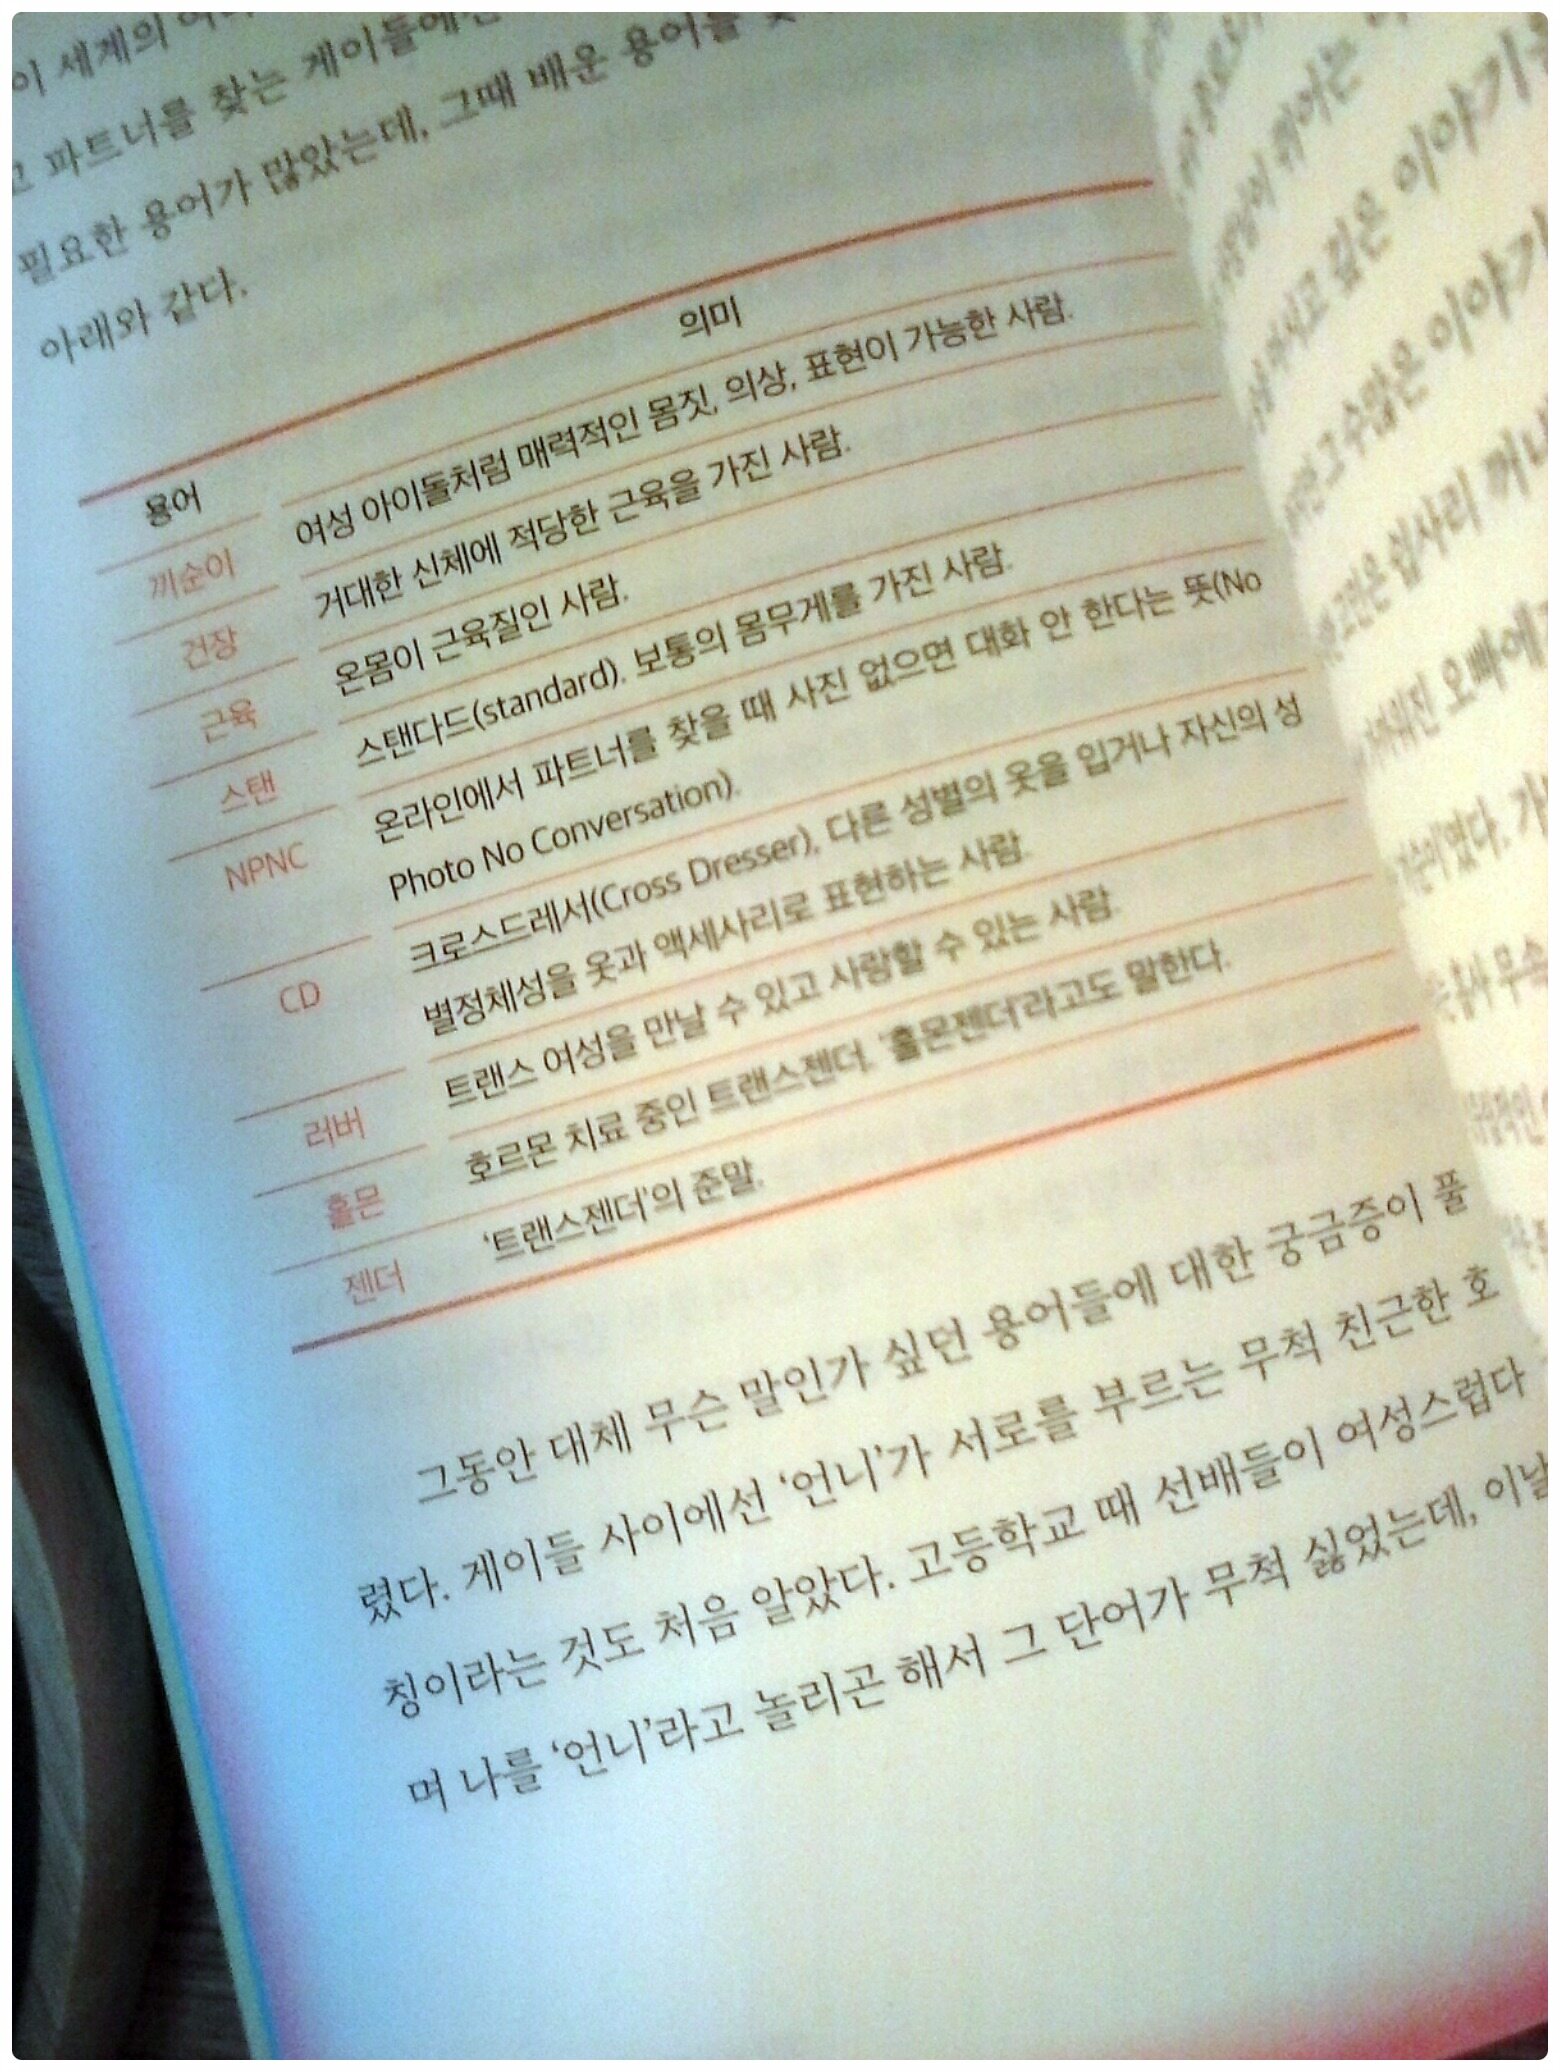 이 세계의
파트너를 찾는 게이들에
필요한 용어가 많았는데, 그때 배운 용어를
아래와 같다.
용어 의미
끼순이 여성 아이돌처럼 매력적인 몸짓, 의상, 표현이 가능한 사람.
건장 거대한 신체에 적당한 근육을 가진 사람.
근육 온몸이 근육질인 사람.
스탠 스탠다드(standard). 보통의 몸무게를 가진 사람.
NPNC 온라인에서 파트너를 찾을 때 사진 없으면 대화 안 한다는 뜻(No
Photo No Conversation).
CD 크로스드레서(Cross Dresser). 다른 성별의 옷을 입거나 자신의 성
별정체성을 옷과 액세사리로 표현하는 사람.
러버 트랜스 여성을 만날 수 있고 사랑할 수 있는 사람.
홀몬 호르몬 치료 중인 트랜스젠더. '홀몬젠더'라고도 말한다.
젠더 '트랜스젠더'의 준말.
그동안 대체 무슨 말인가 싶던 용어들에 대한 궁금증이 풀
렸다. 게이들 사이에선 '언니'가 서로를 부르는 무척 친근한 호
칭이라는 것도 처음 알았다. 고등학교 때 선배들이 여성스럽다
며 나를 '언니'라고 놀리곤 해서 그 단어가 무척 싫었는데, 이날
깊은 이야기
그 수많은 이야기
쉽사리 꺼내
오빠에